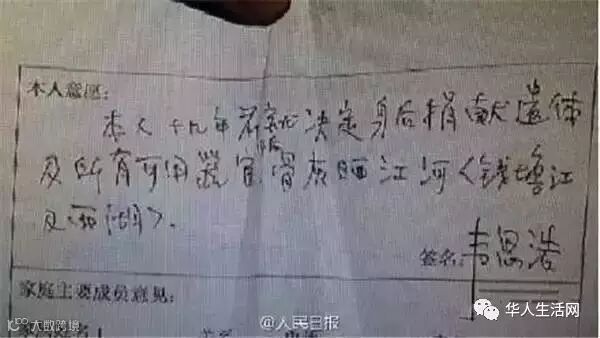 本人意愿:
本人十九年前就决定身后捐献遗体
及所有可用器官,骨灰洒江河<钱塘江
及西湖>.
签名:韦思浩
家庭主要成员意见:
@人民日报
大数跨境
华人生活网